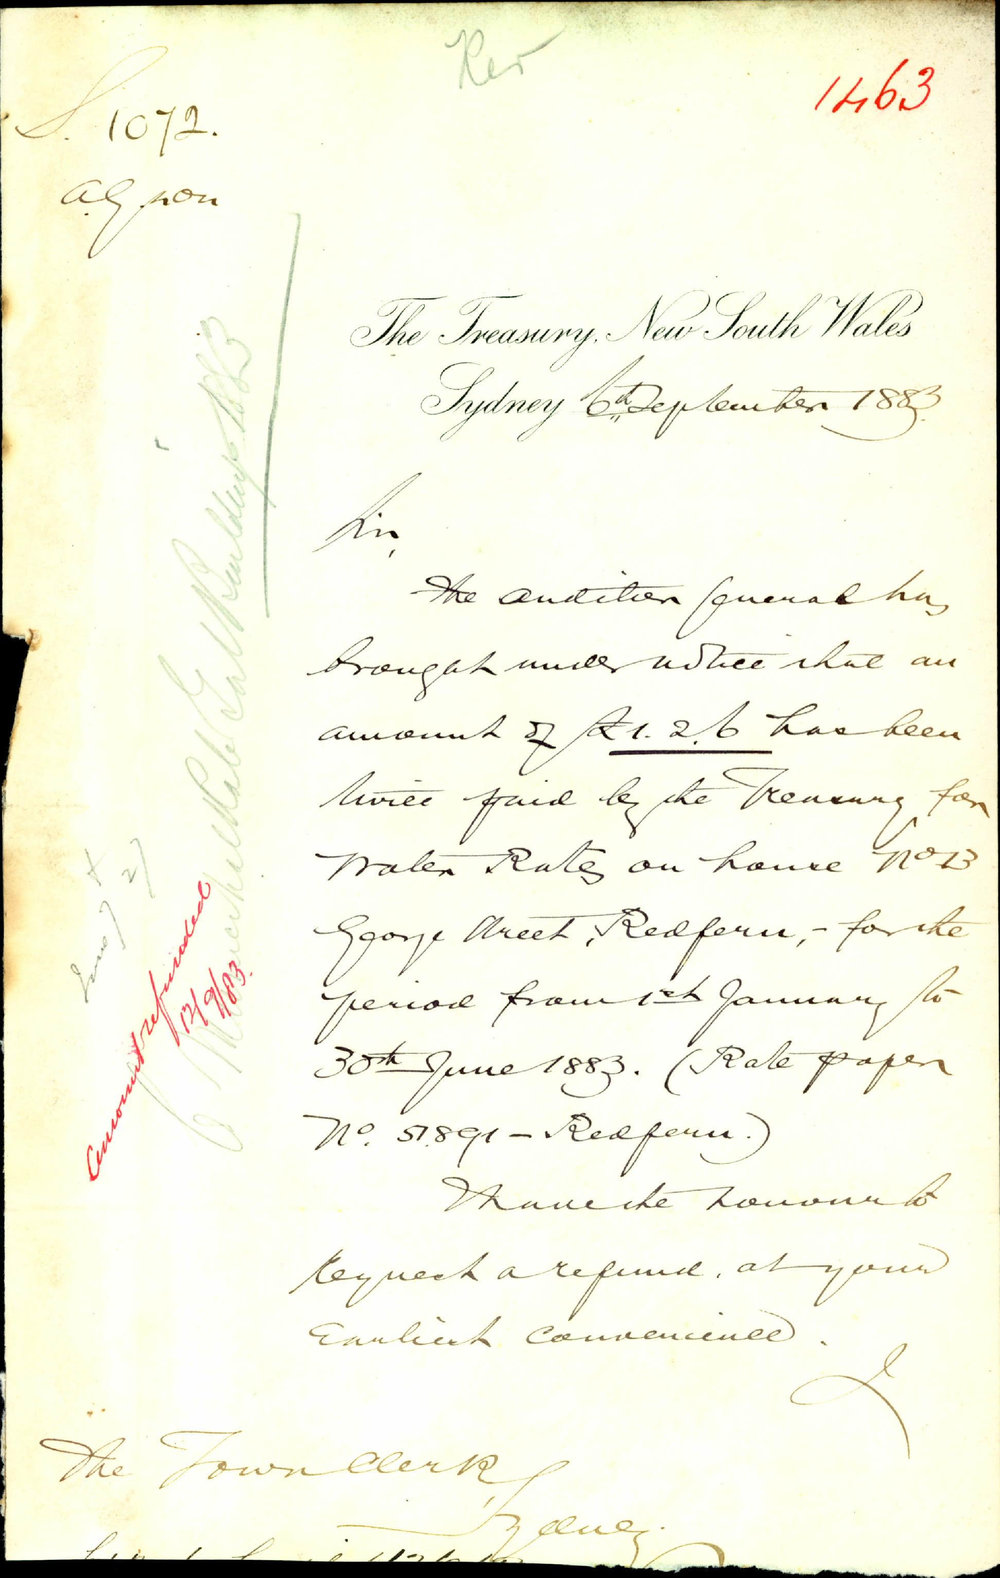 Rev
1463
S. 1072.
The Treasury, New South Wales
Sydney 6th September 1883
Sir,
The Auditor General has
brought under notice that an
amount of £1.2.6 has been
twice paid by the Treasury for
Water Rates on house No 13
George Street, Redfern, - for the
period from 1st January to
30th June 1883. (Rate paper
No. 51891 - Redfern.)
I have the honour to
request a refund, at your
Earliest convenience.
I
The Town Clerk
Sydney
Amount refunded
12/9/83.